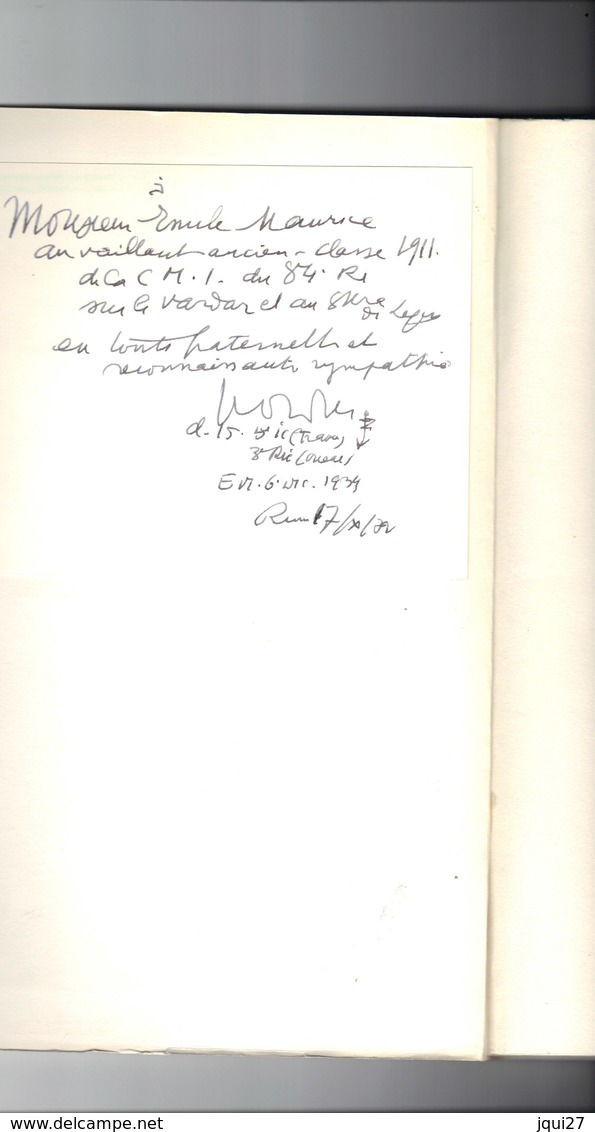 à
Monsieur Emile Maurice
au vaillant ancien - classe 1911.
de la C M. I. du 84e RI
sur le Vardar et au Skra
di Legen
en toute fraternelle et
reconnaissante sympathie
d. 15. (Franc)
3e RIC (Orient)
E.V. 6. 1934
17/XI/72
www.delcampe.net
jqui27